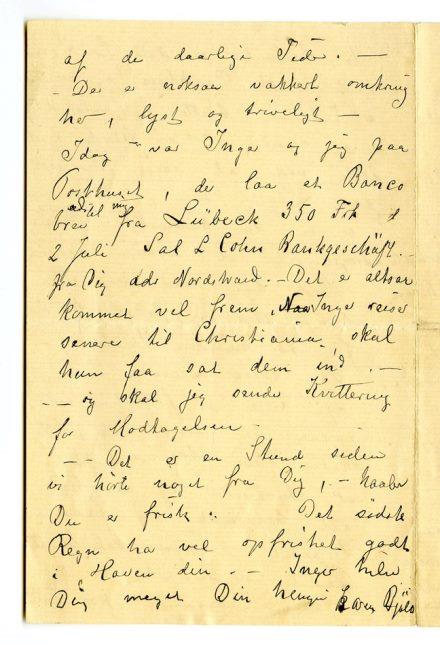 af de daarlige Tider. —
- Der er noksaa vakkert omkring
her, lyst og triveligt —
Idag var Inger og jeg paa
Posthuset, der laa et Banco
brev til mig fra Lübeck 350
2 Juli Sal L Cohn Bankgeschäft. -
fra Dig Nordstrand. - Det er altsaa
kommet vel frem. Naar Inger reiser
senere til Christiania, skal
hun faa sat dem ind. —
— og skal jeg sende Kvittering
for Modtagelsen -
— Det er en Stund siden
vi hørte noget fra Dig, - haaber
Du er frisk. Det sidste
Regn har vel opfrisket godt
i Haven din. — Inger hilser
Dig meget Din hengivne